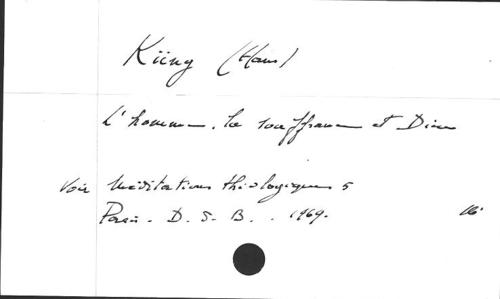 Küng (Hans)
L'homme, la souffrance et Dieu
Voir Méditations théologiques 5
Paris. D. S. B. . 1969.